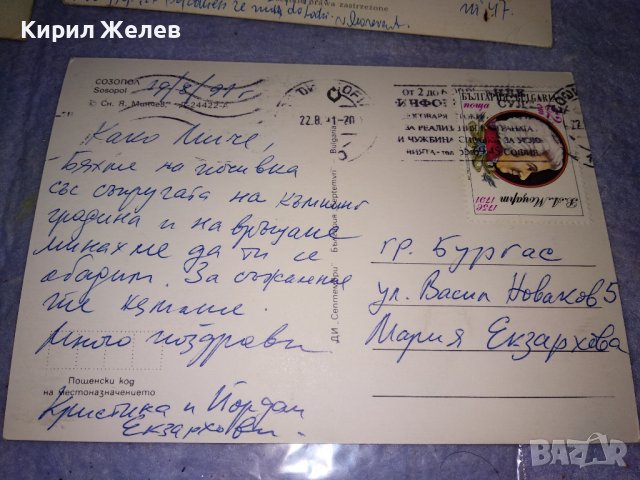 Кирил Желев
№ 47.
СОЗОПОЛ
Sosopol
19/8/91 г
© Сн. Я. Минчев, Д-24422-А
22.8.91-20
ОТ 2 ДО
ИНФО
ЗА РЕАЛИЗ
И ЧУЖБИНА
СОФИЯ
БЪЛГАРИЯ BULGARIA
поща
1756
1791
В. А. Моцарт
Како Миче,
Бяхме на почивка
със съпругата на къмпинг
градина и на връщане
минахме да ти се
обадим. За съжаление
те нямаше.
Много поздрави
Кристина и Йордан
Екзархови.
ДИ „Септември" България Septemvri Bulgaria
гр. Бургас
ул. Васил Новаков 5
Мария Екзархова
Пощенски код
на местоназначението
BAZAR
bg